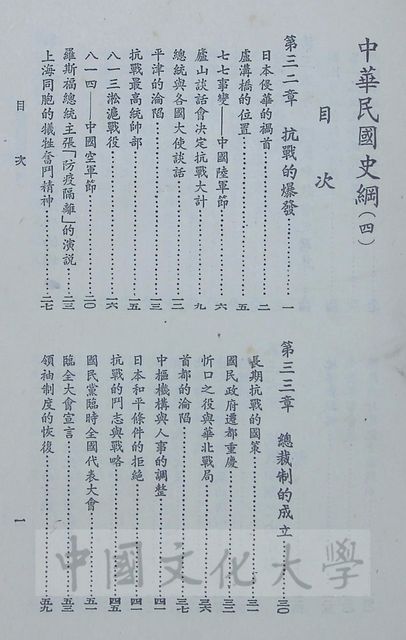 中華民國史綱(四)
目次
第三二章 抗戰的爆發……一
日本侵華的禍首……二
盧溝橋的位置……五
七七事變——中國陸軍節……六
廬山談話會決定抗戰大計……九
總統與各國大使談話……一二
平津的淪陷……一三
抗戰最高統帥部……一五
八一三淞滬戰役……一六
八一四——中國空軍節……二〇
羅斯福總統主張「防疫隔離」的演說……二三
上海同胞的犧牲奮鬥精神……二七
第三三章 總裁制的成立……三〇
長期抗戰的國策……三一
國民政府遷都重慶……三二
忻口之役與華北戰局……三六
首都的淪陷……三七
中樞機構與人事的調整……四一
日本和平條件的拒絕……四四
抗戰的鬥志與戰略……四五
國民黨臨時全國代表大會……五一
臨全大會宣言……五三
領袖制度的恢復……五九
目次
一
中國文化大學